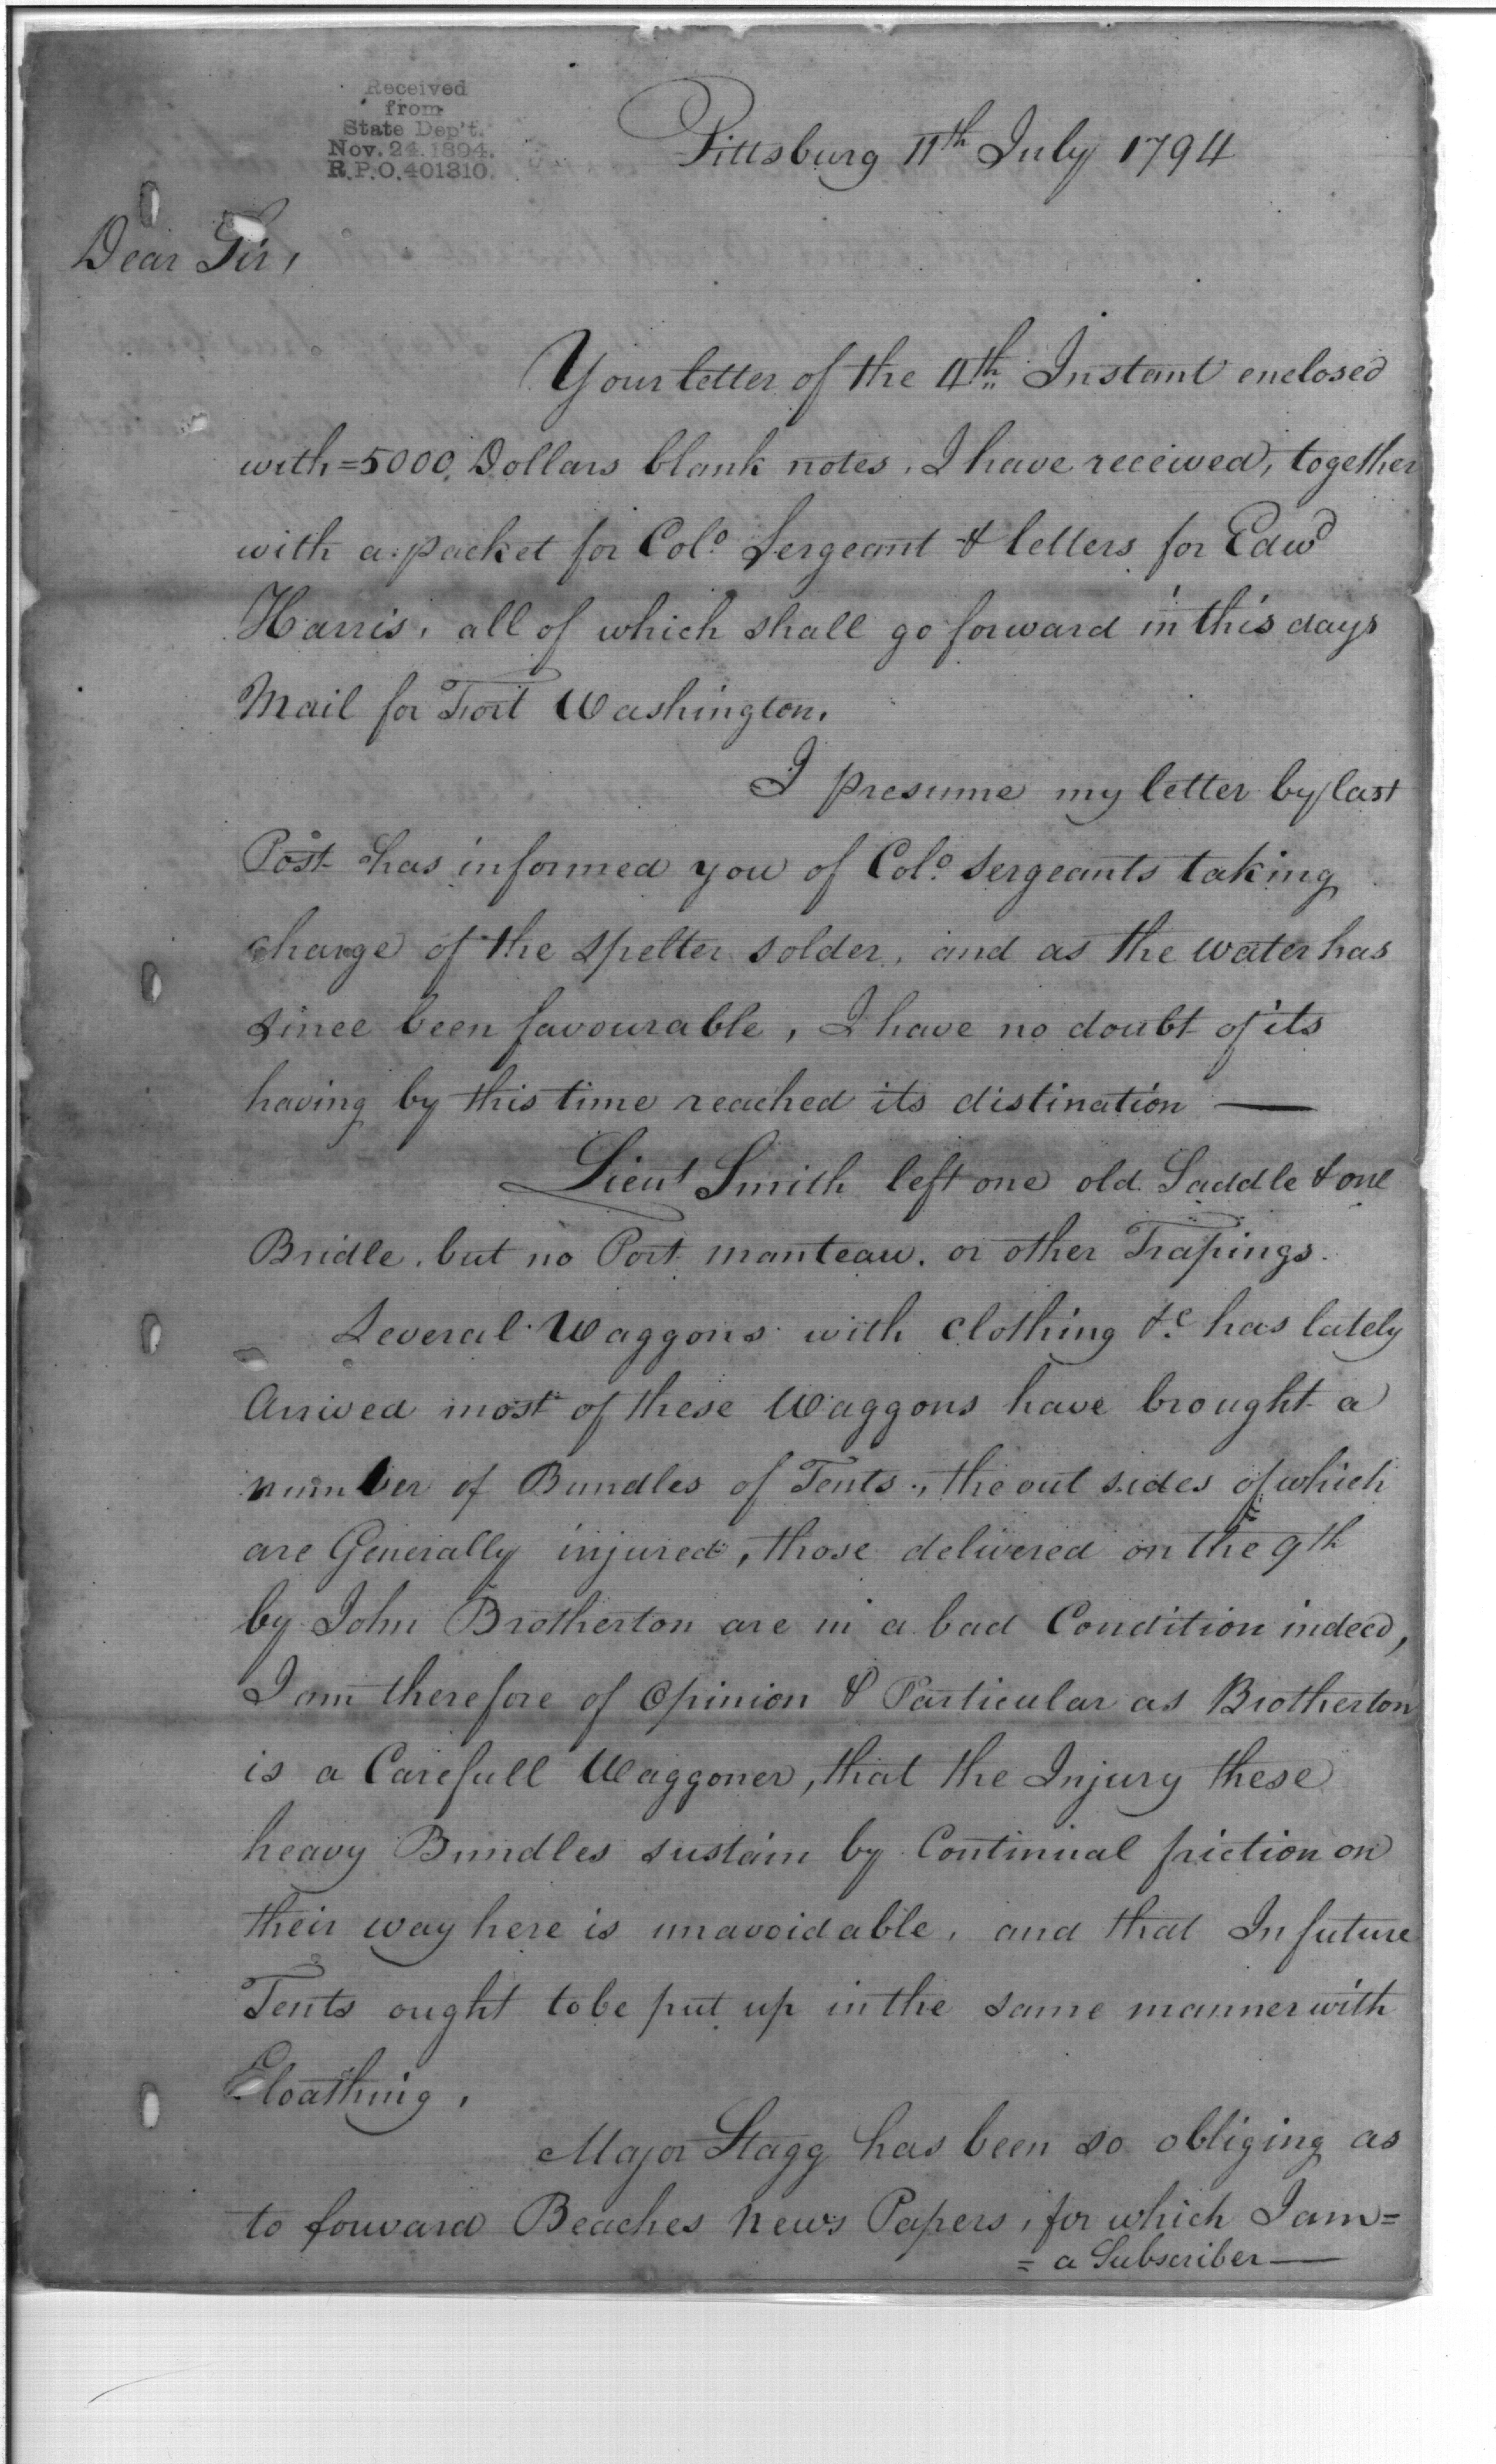 Received
from
State Dep't.
Nov. 24. 1894.
R.P.O. 401310.
Pittsburg 11th July 1794
Dear Sir,
Your letter of the 4th Instant enclosed
with = 5000 Dollars blank notes, I have received, together
with a packet for Colo. Sergeant & letters for Edwd
Harris, all of which shall go forward in this days
Mail for Fort Washington.
I presume my letter by last
Post has informed you of Colo. Sergeants taking
charge of the Spelter solder, and as the water has
since been favourable, I have no doubt of its
having by this time reached its distination —
Lieut Smith left one old Saddle & one
Bridle, but no Port manteau, or other Trapings.
Several Waggons with clothing &c has lately
Arrived most of these Waggons have brought a
number of Bundles of Tents, the out sides of which
are Generally injured, those delivered on the 9th
by John Brotherton are in a bad Condition indeed,
I am therefore of Opinion & Particular as Brotherton
is a Carefull Waggoner, that the Injury these
heavy Bundles sustain by Continual friction on
their way here is unavoidable, and that In future
Tents ought to be put up in the same manner with
Cloathing,
Major Stagg has been so obliging as
to forward Beaches News Papers, for which I am =
= a Subscriber —